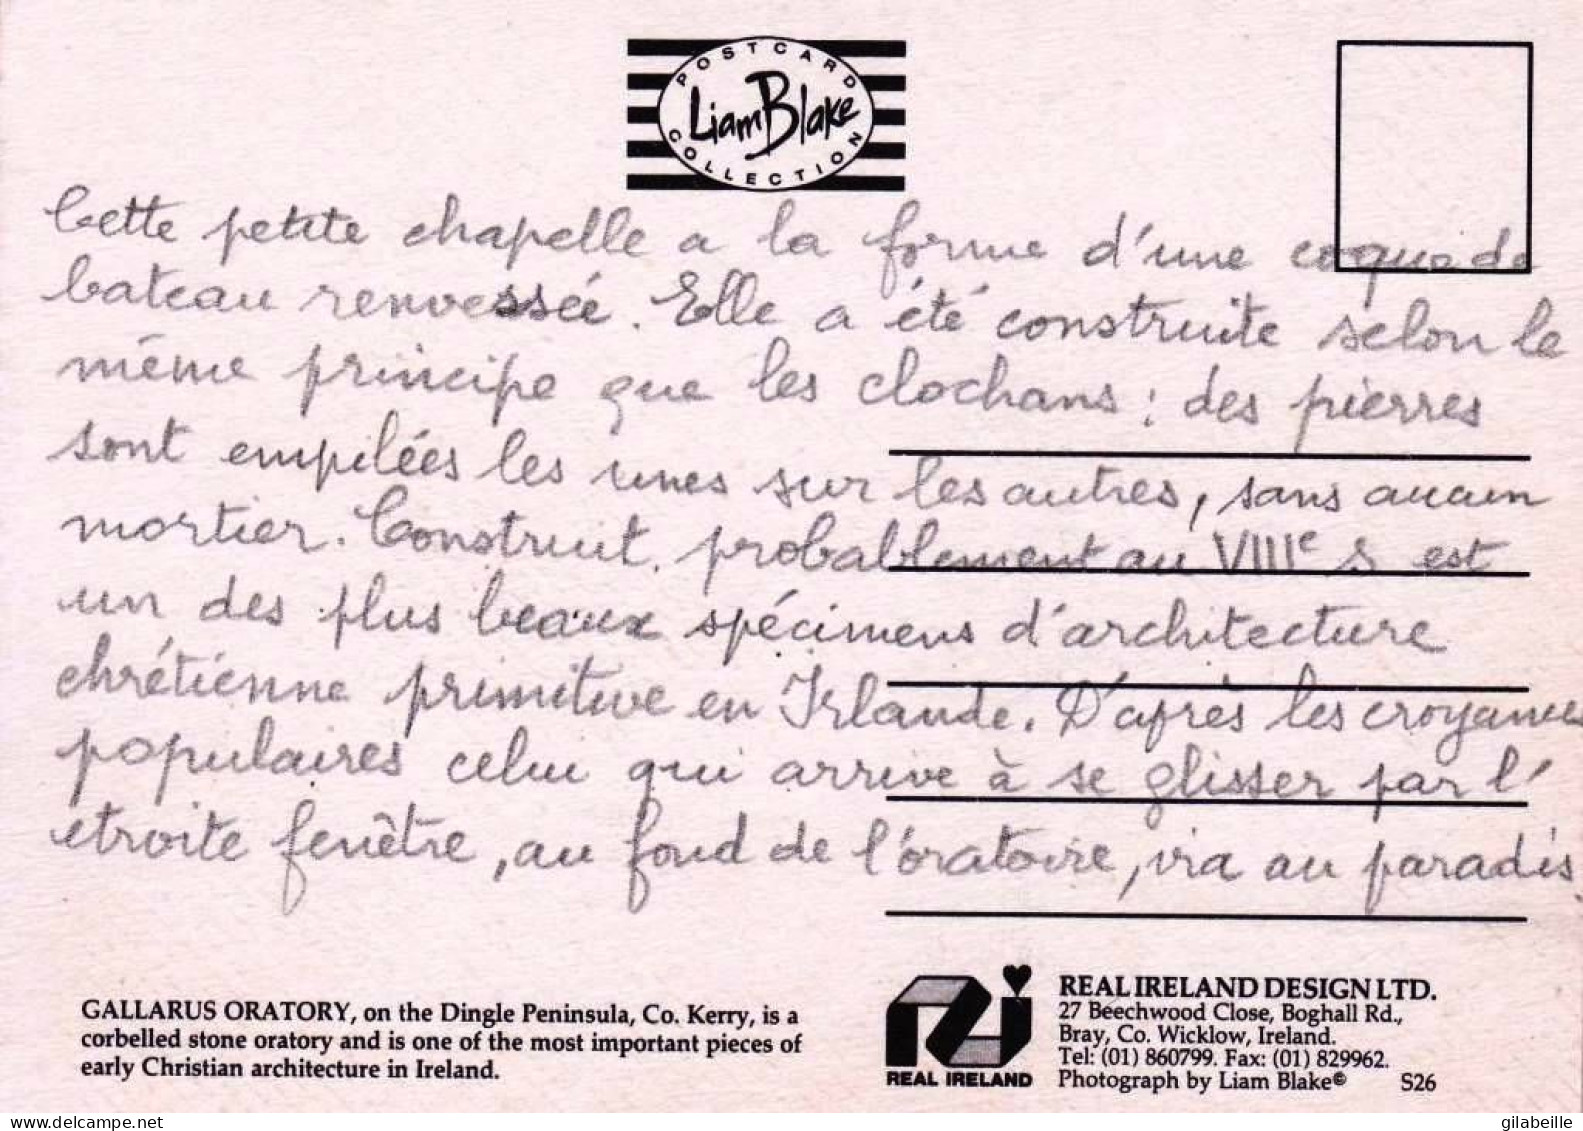 POSTCARD
Liam Blake
COLLECTION
Cette petite chapelle a la forme d'une coque de
bateau renvessée. Elle a été construite selon le
même principe que les clochans : des pierres
sont empilées les unes sur les autres, sans aucun
mortier. Construit probablement au VIIIe s est
un des plus beaux spécimens d'architecture
chrétienne primitive en Irlande. D'après les croyances
populaires celui qui arrive à se glisser par l'
etroite fenêtre, au fond de l'oratoire, ira au paradis
GALLARUS ORATORY, on the Dingle Peninsula, Co. Kerry, is a
corbelled stone oratory and is one of the most important pieces of
early Christian architecture in Ireland.
REAL IRELAND
REAL IRELAND DESIGN LTD.
27 Beechwood Close, Boghall Rd.,
Bray, Co. Wicklow, Ireland.
Tel: (01) 860799. Fax: (01) 829962.
Photograph by Liam Blake© S26
www.delcampe.net
gilabeille